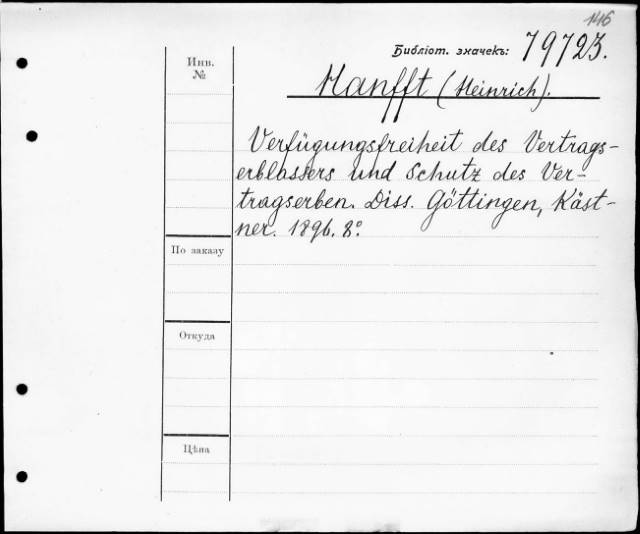 146
Библіот. значекъ: 79723.
Инв.
№
Hanfft (Heinrich).
Verfügungsfreiheit des Vertrags-
erblassers und Schutz des Ver-
tragserben. Diss. Göttingen, Käst-
ner. 1896. 8°.
По заказу
Откуда
Цѣна